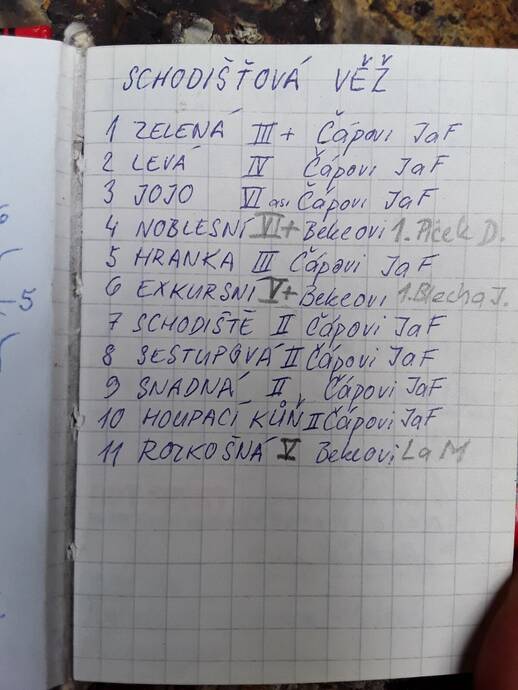 SCHODIŠŤOVÁ VĚŽ
1 ZELENÁ III+ Čápovi JaF
2 LEVÁ IV Čápovi JaF
3 JOJO VI asi Čápovi JaF
4 NOBLESNÍ VI+ Bekeovi 1. Piček D.
5 HRANKA III Čápovi JaF
6 EXKURSNÍ V+ Bekeovi 1. Blecha J.
7 SCHODIŠTĚ II Čápovi JaF
8 SESTUPOVÁ II Čápovi JaF
9 SNADNÁ II Čápovi JaF
10 HOUPACÍ KŮŇ II Čápovi JaF
11 ROZKOŠNÁ V Bekeovi LaM
5